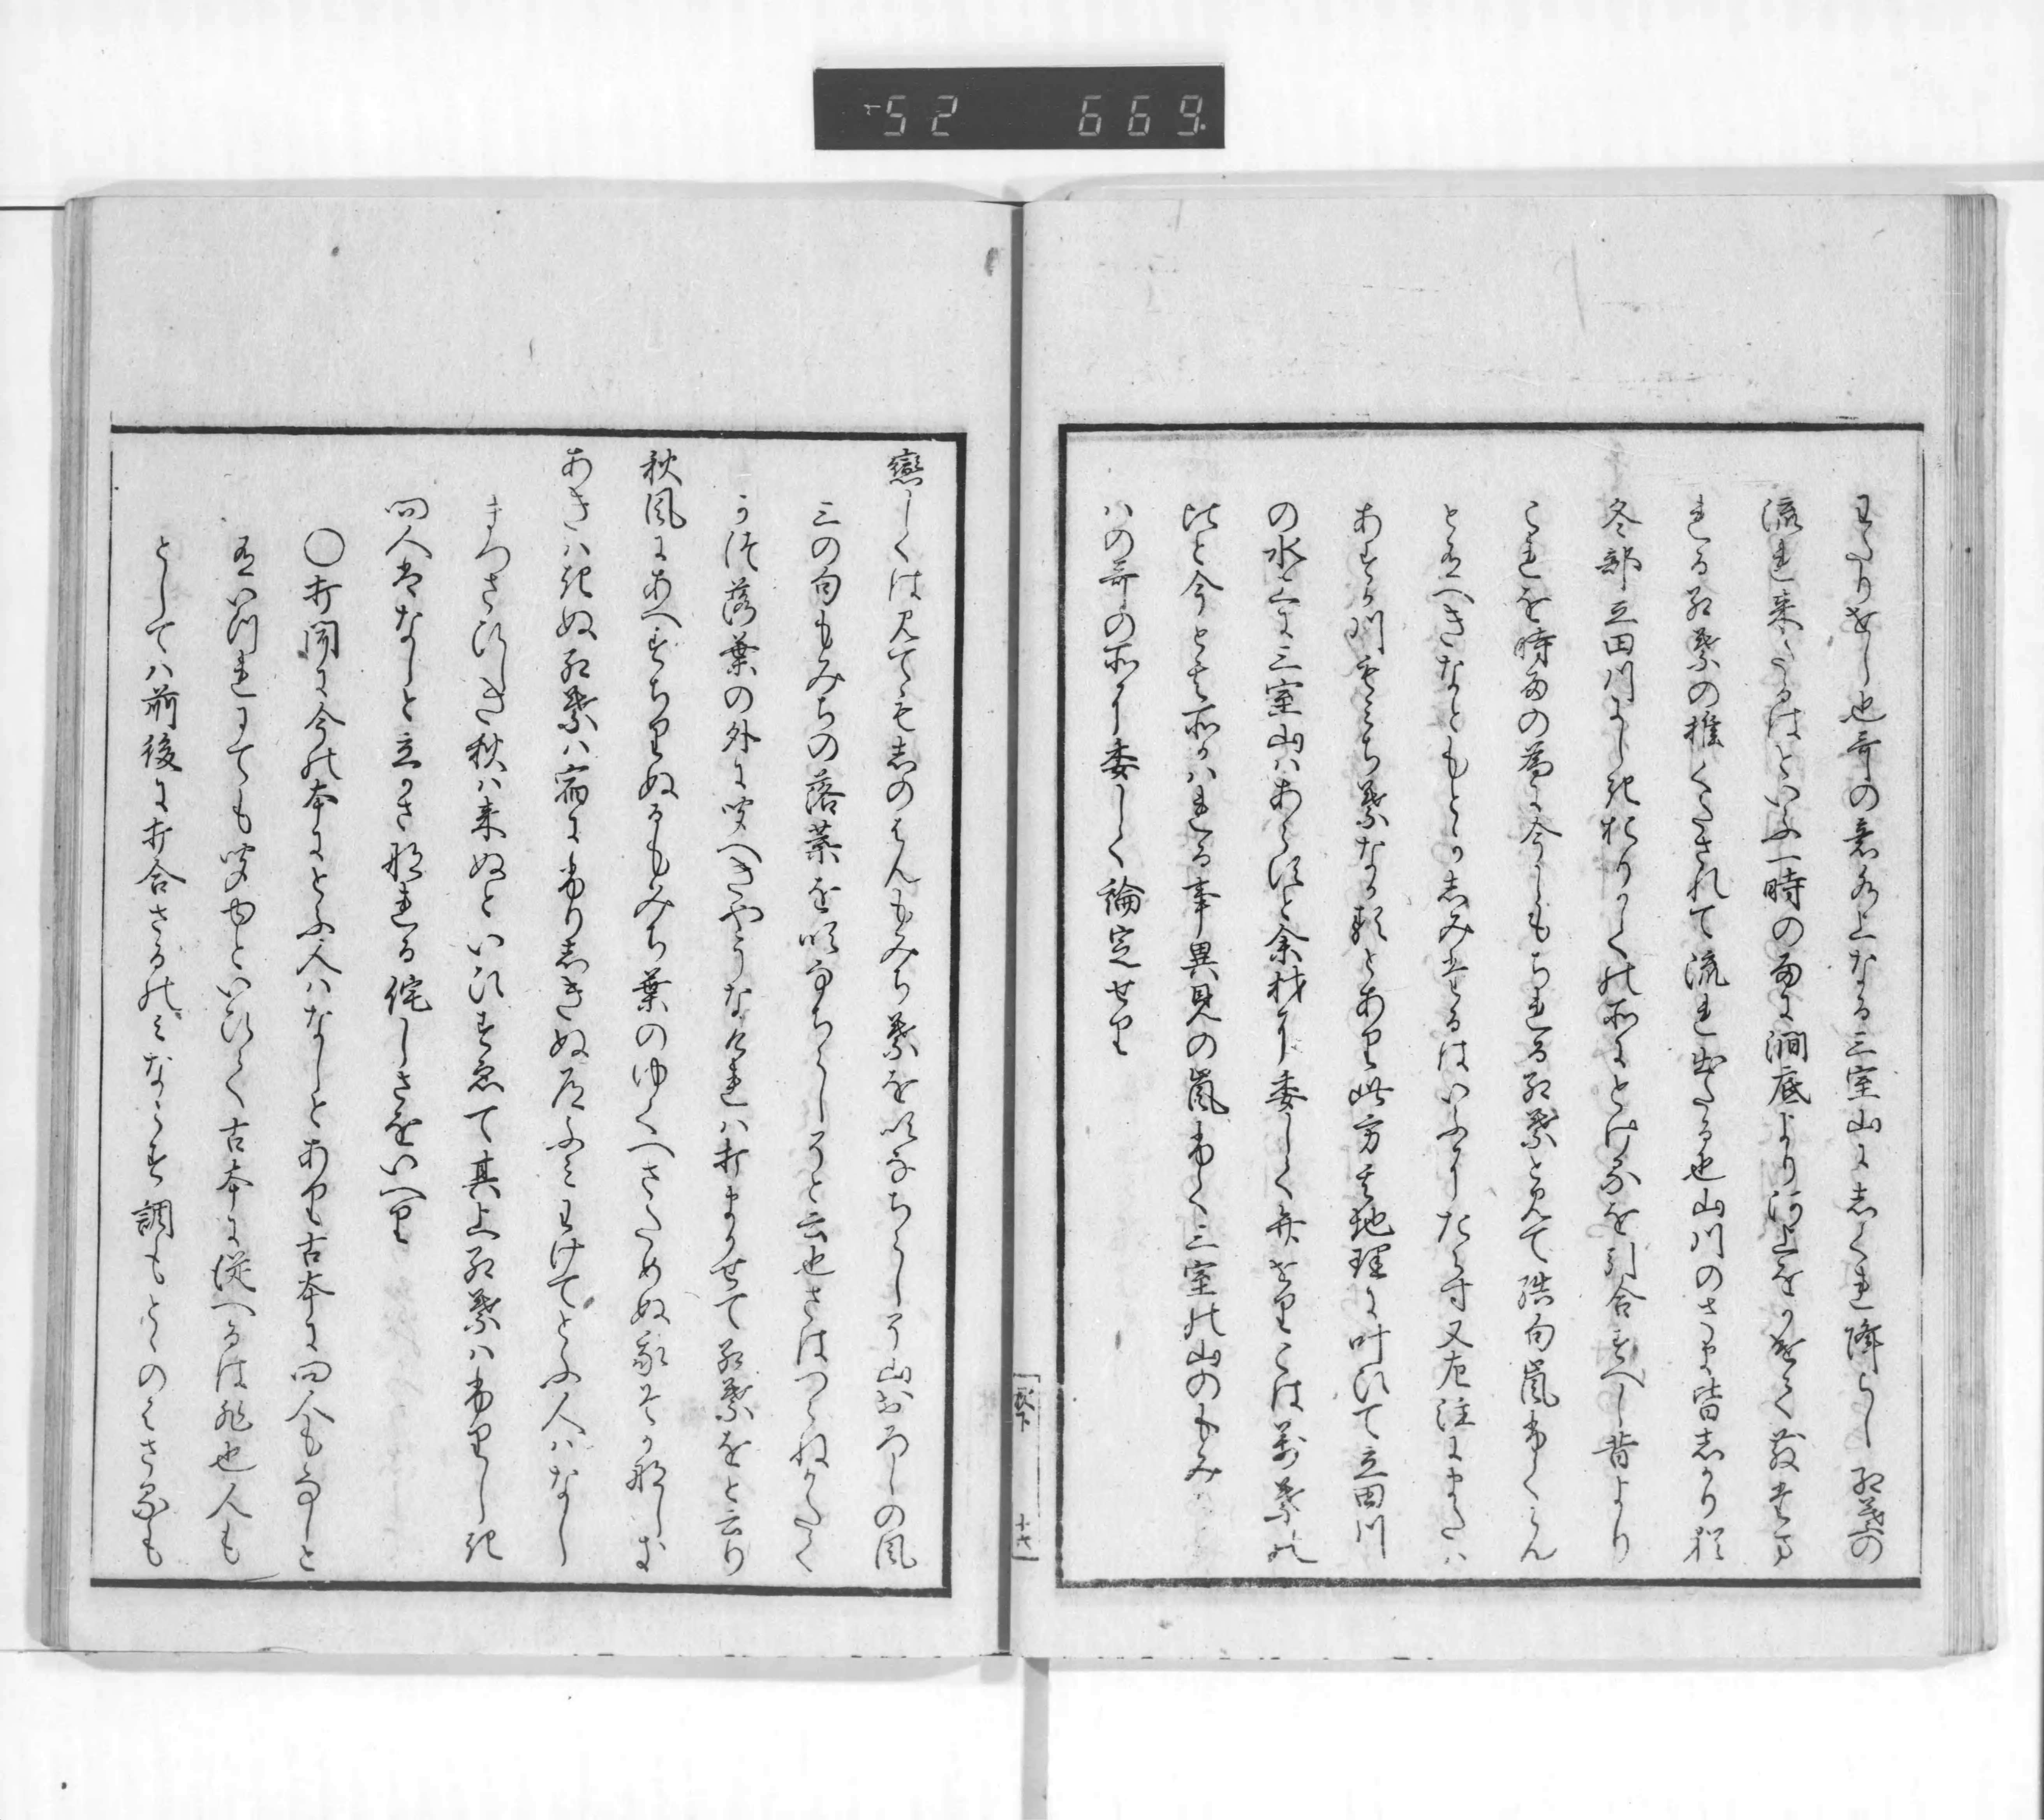 わたりせし也哥の意水上なる三室山にしくれ降らし紅葉の
流れ来たるはといふ一時の雨に澗底より河上を
れる紅葉の推くたされて流れ出たる也山川のさま皆しかり
冬部立田川にしきおりかくの所にとけるを引合すへし昔より
これを時雨の為に今しもちれる紅葉と見て結句嵐ふくらん
と有へきなともとかしみたるはいふにたらす又左注にまたハ
あすか川もみち葉なかるとあり此方も地理に叶ひて立田川
の水上に三室山ハあらすと余材に委しく弁せりこは万葉の
比と今とも所かハれる事異見の嵐ふく三室の山のもみ
ハの哥の所に委しく論定せり
戀しくは見てもしのはんもみち葉を吹なちらしそ山おろしの風
三の句もみちの落葉を吹なちらしそと云也さはつらぬかたく
うつ落葉の外に聞へきやうなけれハ打まかせて紅葉をと云り
秋風にあへすちりぬるもみち葉のゆくへさためぬ我そかなしき
あきハきぬ紅葉ハ宿にふりしきぬ道ふみわけてとふ人ハなし
まつさひしき秋ハ来ぬといひすゑて其上紅葉ハふりしき
問人はなしと立かさねたる侘しさをいへり
○打聞に今の本にとふ人ハなしとあり古本に問人もなしと
有いつれにても聞ゆといひて古本に従へるは非也人も
としてハ前後に打合さるのみならす調もとゝのはさるも
秋下
十七
52 669